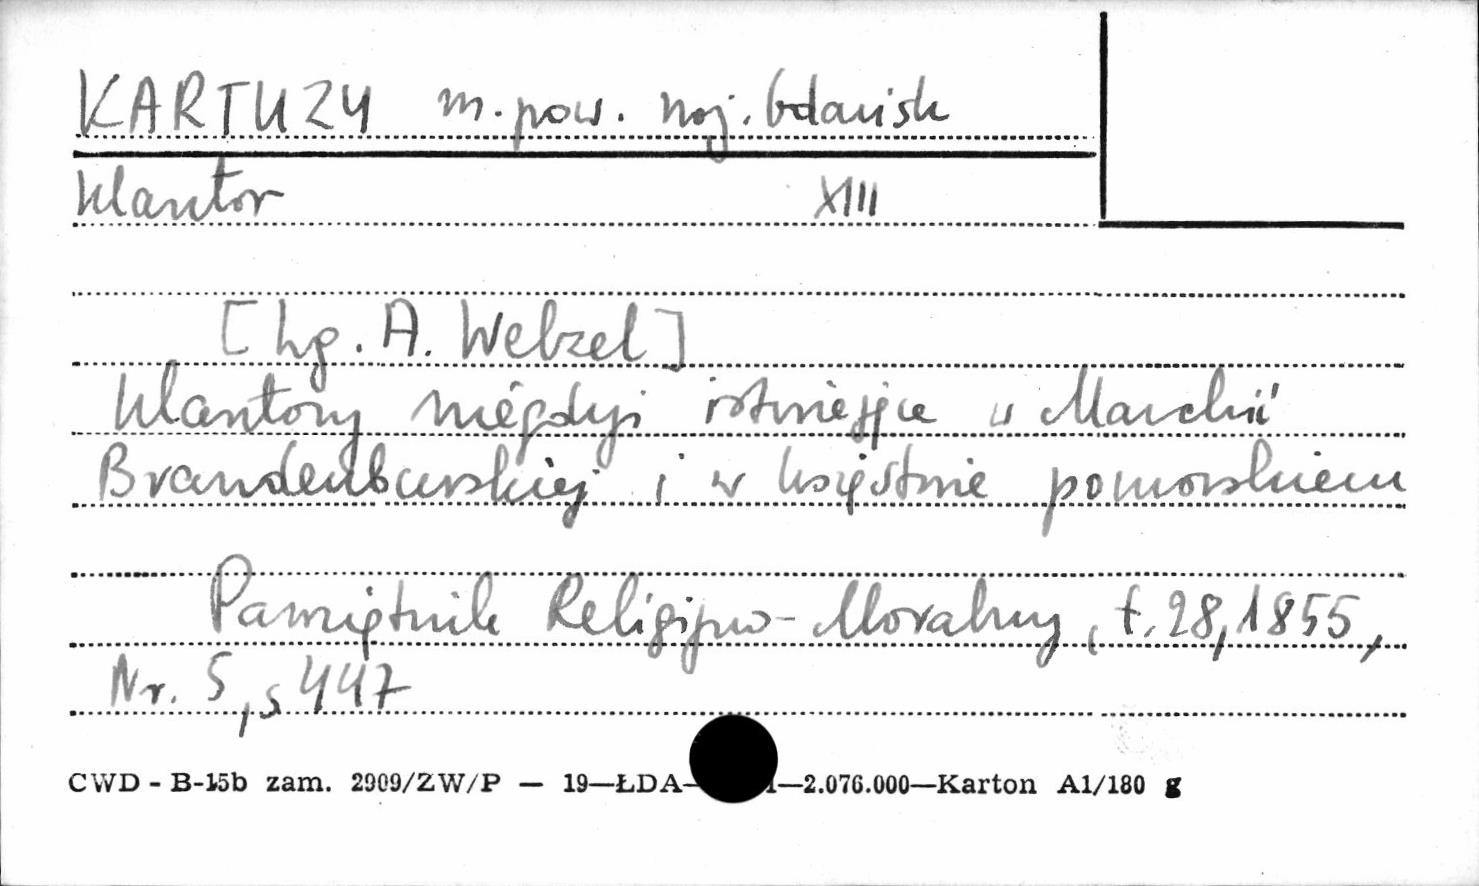 KARTUZY m. pow. woj. Gdańsk
klasztor XIII
[hg. A. Welzel]
klasztory niégdyś istniejące w Marchii
Brandenburskiej i w księstwie pomorskiem
Pamiętnik Religijno-Moralny, t. 28, 1855,
Nr. 5, s 447
CWD - B-15b zam. 2909/ZW/P — 19—ŁDA— —2.076.000—Karton A1/180 g